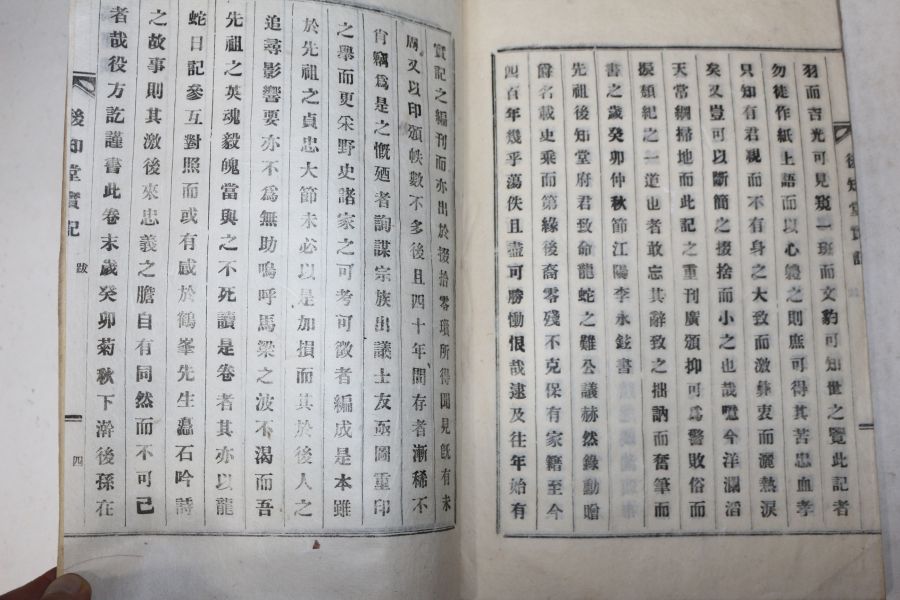 羽而吉光可見窺一班而文豹可知世之覽此記者
勿徒作紙上語而以心體之則庶可得其苦忠血孝
只知有君親而不有身之大致而激彝衷而灑熱淚
矣又豈可以斷簡之掇捨而小之也哉噫今洋瀾滔
天常綱掃地而此記之重刊廣頒抑可爲警敗俗而
振頹紀之一道也者敢忘其辭致之拙訥而奮筆而
書之歲癸卯仲秋節江陽李永鉉書
先祖後知堂府君致命龍蛇之難公議赫然錄勳贈
爵名載史乘而第緣後裔零殘不克保有家籍至今
四百年幾乎蕩佚且盡可勝慟恨哉逮及往年始有
實記之編刊而亦出於掇拾零瑣所得聞見旣有未
周又以印頒帙數不多後且四十年間存者漸稀不
肖竊爲是之慨廼者詢謀宗族出議士友亟圖重印
之擧而更采野史諸家之可考可徵者編成是本雖
於先祖之貞忠大節未必以是加損而其於後人之
追尋影響要亦不爲無助嗚呼馬梁之波不渴而吾
先祖之英魂毅魄當與之不死讀是卷者其亦以龍
蛇日記參互對照而或有感於鶴峯先生矗石吟詩
之故事則其激後來忠義之膽自有同然而不可已
者哉役方訖謹書此卷末歲癸卯菊秋下澣後孫在
後知堂實記
跋
四